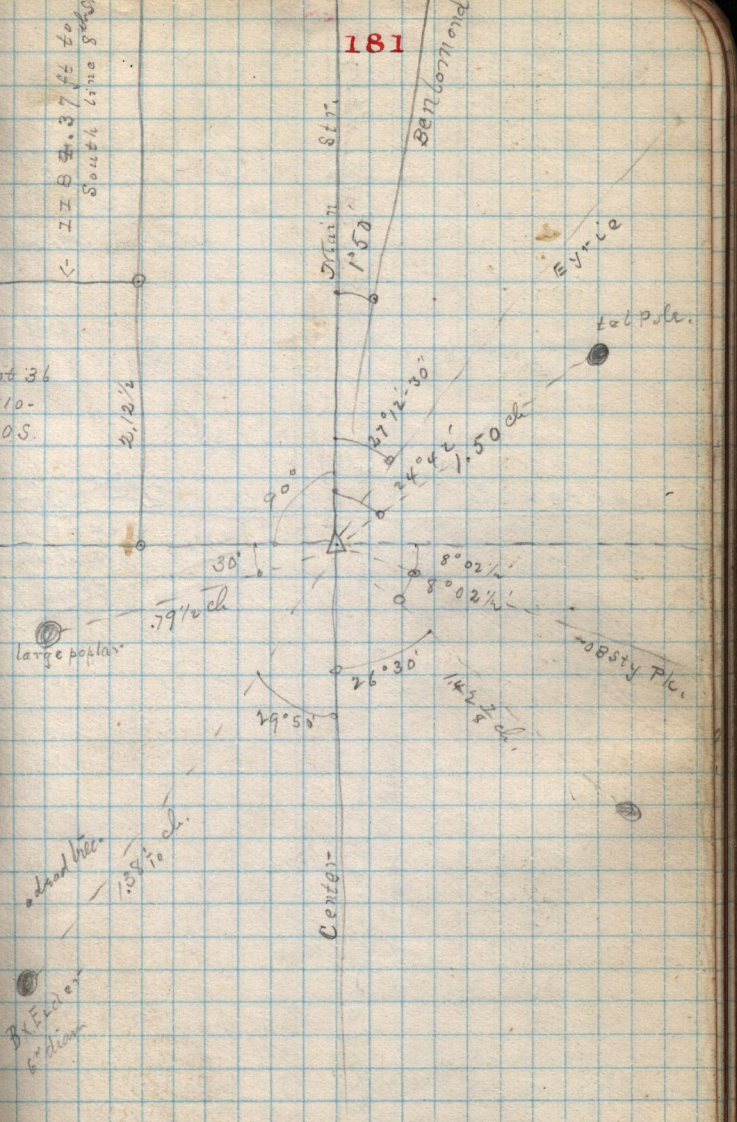 181
South line 8th
Main Str.
Benlomond
1°50'
Eyrie
tel pole.
ot 36
10-
OS.
2.12½
27°12'-30"
24°42'
1.50 ch
90°
30'
8°02½'
8°02½'
.79½ ch
large poplar
Obsty Pk.
26°30'
29°50'
ch.
dead tree.
ch.
Center
Bx Elder
6" diam